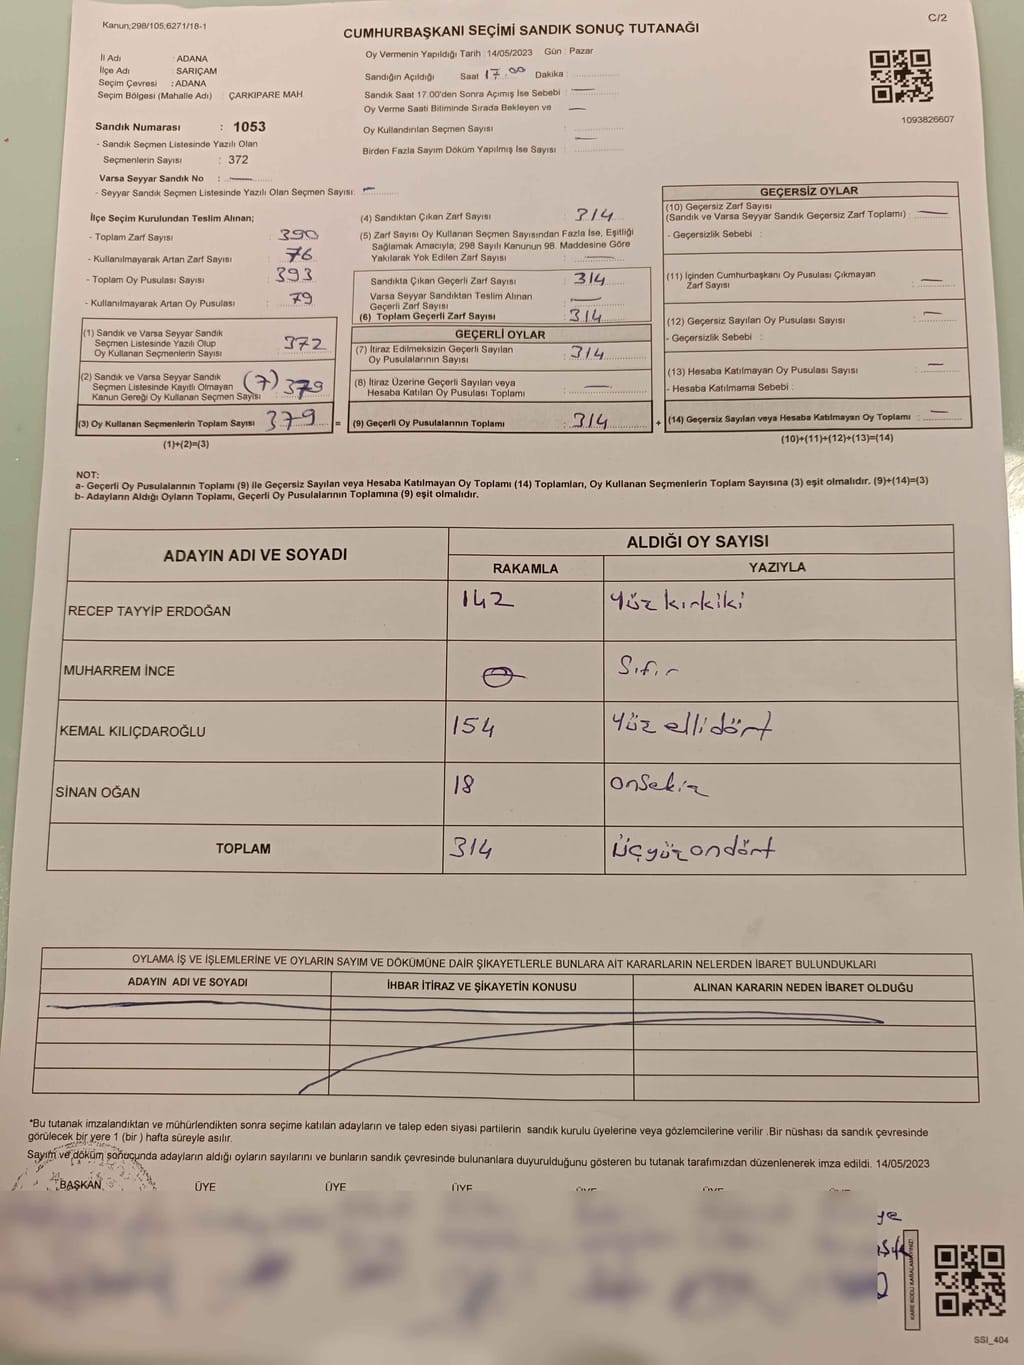 Kanun;298/105,6271/18-1
C/2
CUMHURBAŞKANI SEÇİMİ SANDIK SONUÇ TUTANAĞI
İl Adı : ADANA
İlçe Adı : SARIÇAM
Seçim Çevresi : ADANA
Seçim Bölgesi (Mahalle Adı) : ÇARKIPARE MAH.
Sandık Numarası : 1053
- Sandık Seçmen Listesinde Yazılı Olan
Seçmenlerin Sayısı : 372
Varsa Seyyar Sandık No : —
- Seyyar Sandık Seçmen Listesinde Yazılı Olan Seçmen Sayısı: —
Oy Vermenin Yapıldığı Tarih : 14/05/2023 Gün : Pazar
Sandığın Açıldığı Saat 17.00 Dakika :
Sandık Saat 17.00'den Sonra Açımış İse Sebebi : —
Oy Verme Saati Bitiminde Sırada Bekleyen ve —
Oy Kullandırılan Seçmen Sayısı :
Birden Fazla Sayım Döküm Yapılmış İse Sayısı : —
1093826607
İlçe Seçim Kurulundan Teslim Alınan;
- Toplam Zarf Sayısı : 390
- Kullanılmayarak Artan Zarf Sayısı : 76
- Toplam Oy Pusulası Sayısı : 393
- Kullanılmayarak Artan Oy Pusulası : 79
(1) Sandık ve Varsa Seyyar Sandık
Seçmen Listesinde Yazılı Olup
Oy Kullanan Seçmenlerin Sayısı : 372
(2) Sandık ve Varsa Seyyar Sandık
Seçmen Listesinde Kayıtlı Olmayan
Kanun Gereği Oy Kullanan Seçmen Sayısı (7) 379
(3) Oy Kullanan Seçmenlerin Toplam Sayısı : 379 =
(1)+(2)=(3)
(4) Sandıktan Çıkan Zarf Sayısı : 314
(5) Zarf Sayısı Oy Kullanan Seçmen Sayısından Fazla İse, Eşitliği
Sağlamak Amacıyla, 298 Sayılı Kanunun 98. Maddesine Göre
Yakılarak Yok Edilen Zarf Sayısı : —
Sandıkta Çıkan Geçerli Zarf Sayısı : 314
Varsa Seyyar Sandıktan Teslim Alınan
Geçerli Zarf Sayısı : —
(6) Toplam Geçerli Zarf Sayısı : 314
GEÇERLİ OYLAR
(7) İtiraz Edilmeksizin Geçerli Sayılan
Oy Pusulalarının Sayısı : 314
(8) İtiraz Üzerine Geçerli Sayılan veya
Hesaba Katılan Oy Pusulası Toplamı : —
(9) Geçerli Oy Pusulalarının Toplamı : 314 +
GEÇERSİZ OYLAR
(10) Geçersiz Zarf Sayısı
(Sandık ve Varsa Seyyar Sandık Geçersiz Zarf Toplamı) : —
- Geçersizlik Sebebi :
(11) İçinden Cumhurbaşkanı Oy Pusulası Çıkmayan
Zarf Sayısı : —
(12) Geçersiz Sayılan Oy Pusulası Sayısı : —
- Geçersizlik Sebebi :
(13) Hesaba Katılmayan Oy Pusulası Sayısı : —
- Hesaba Katılmama Sebebi :
(14) Geçersiz Sayılan veya Hesaba Katılmayan Oy Toplamı : —
(10)+(11)+(12)+(13)=(14)
NOT:
a- Geçerli Oy Pusulalarının Toplamı (9) ile Geçersiz Sayılan veya Hesaba Katılmayan Oy Toplamı (14) Toplamları, Oy Kullanan Seçmenlerin Toplam Sayısına (3) eşit olmalıdır. (9)+(14)=(3)
b- Adayların Aldığı Oyların Toplamı, Geçerli Oy Pusulalarının Toplamına (9) eşit olmalıdır.
ADAYIN ADI VE SOYADI
ALDIĞI OY SAYISI
RAKAMLA YAZIYLA
RECEP TAYYİP ERDOĞAN 142 Yüz kırkiki
MUHARREM İNCE 0 Sıfır
KEMAL KILIÇDAROĞLU 154 Yüz ellidört
SİNAN OĞAN 18 onsekiz
TOPLAM 314 Üçyüz ondört
OYLAMA İŞ VE İŞLEMLERİNE VE OYLARIN SAYIM VE DÖKÜMÜNE DAİR ŞİKAYETLERLE BUNLARA AİT KARARLARIN NELERDEN İBARET BULUNDUKLARI
ADAYIN ADI VE SOYADI İHBAR İTİRAZ VE ŞİKAYETİN KONUSU ALINAN KARARIN NEDEN İBARET OLDUĞU
*Bu tutanak imzalandıktan ve mühürlendikten sonra seçime katılan adayların ve talep eden siyasi partilerin sandık kurulu üyelerine veya gözlemcilerine verilir .Bir nüshası da sandık çevresinde
görülecek bir yere 1 (bir ) hafta süreyle asılır.
Sayım ve döküm sonucunda adayların aldığı oyların sayılarını ve bunların sandık çevresinde bulunanlara duyurulduğunu gösteren bu tutanak tarafımızdan düzenlenerek imza edildi. 14/05/2023
BAŞKAN ÜYE ÜYE ÜYE
SSI_404